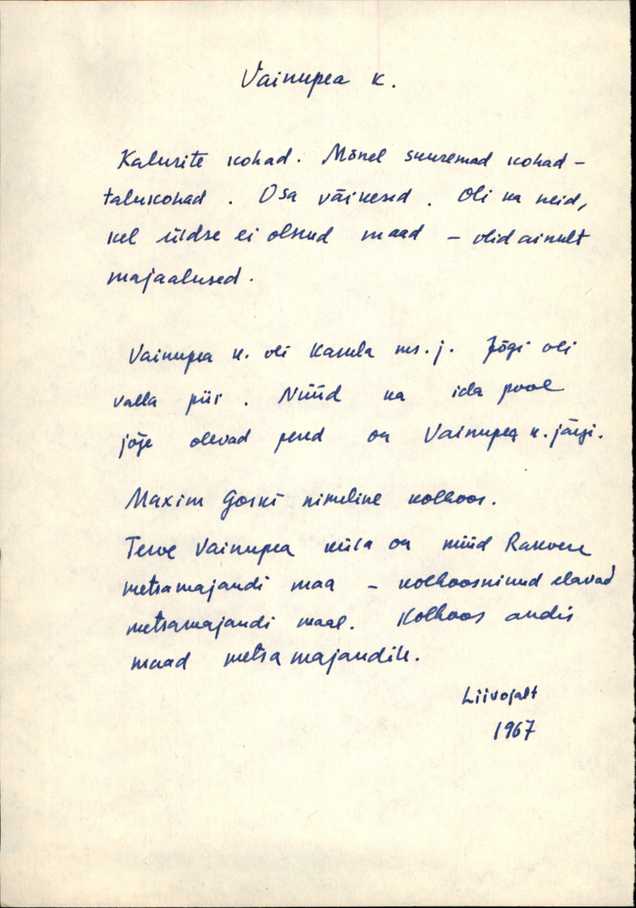 Vainupea k.
Kalurite kohad. Mõnel suuremad kohad -
talukohad. Osa väikesed. Oli ka neid,
kel üldse ei olnud maad - olid ainult
majaalused.
Vainupea k. oli Karula ms. j. Jõgi oli
valla piir. Nüüd ka ida pool
jõge olevad pered on Vainupea k. järgi.
Maxim Gorki nimeline kolhoos.
Terve Vainupea küla on nüüd Rakvere
metsamajandi maa - kolhoosnikud elavad
metsamajandi maal. Kolhoos andis
maad metsamajandile.
Liivojalt
1967